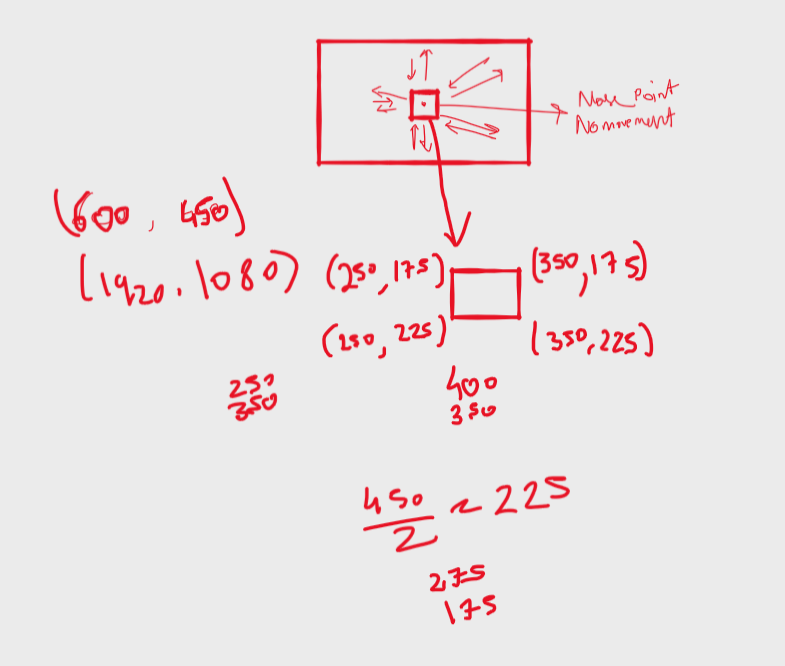 Nose Point
No movement
(600, 450)
(1920, 1080)
(250, 175)
(350, 175)
(250, 225)
(350, 225)
250
350
400
350
450
2
~ 225
275
175